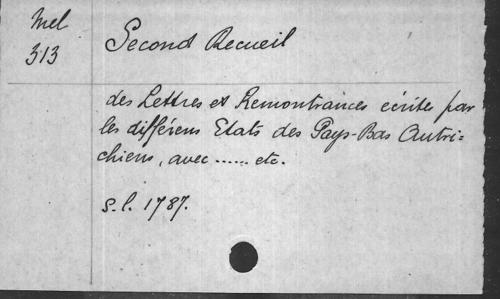 Mel
313
Second Recueil
des Lettres et Remontrances écrites par
les différens Etats des Pays-Bas Autri=
chiens, avec ...... etc.
s.l. 1787.